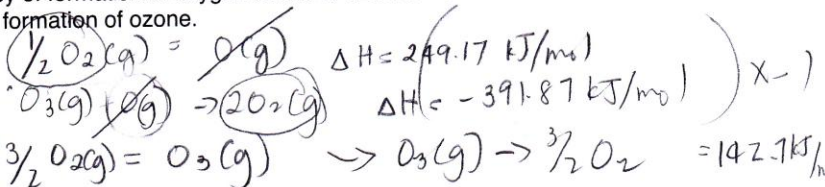 formation of ozone.
1/2 O2(g) = O(g) ΔH = 249.17 kJ/mol
O3(g) + O(g) → 2O2(g) ΔH = -391.87 kJ/mol ) x-1
3/2 O2(g) = O3(g) → O3(g) → 3/2 O2 = 142.7 kJ/